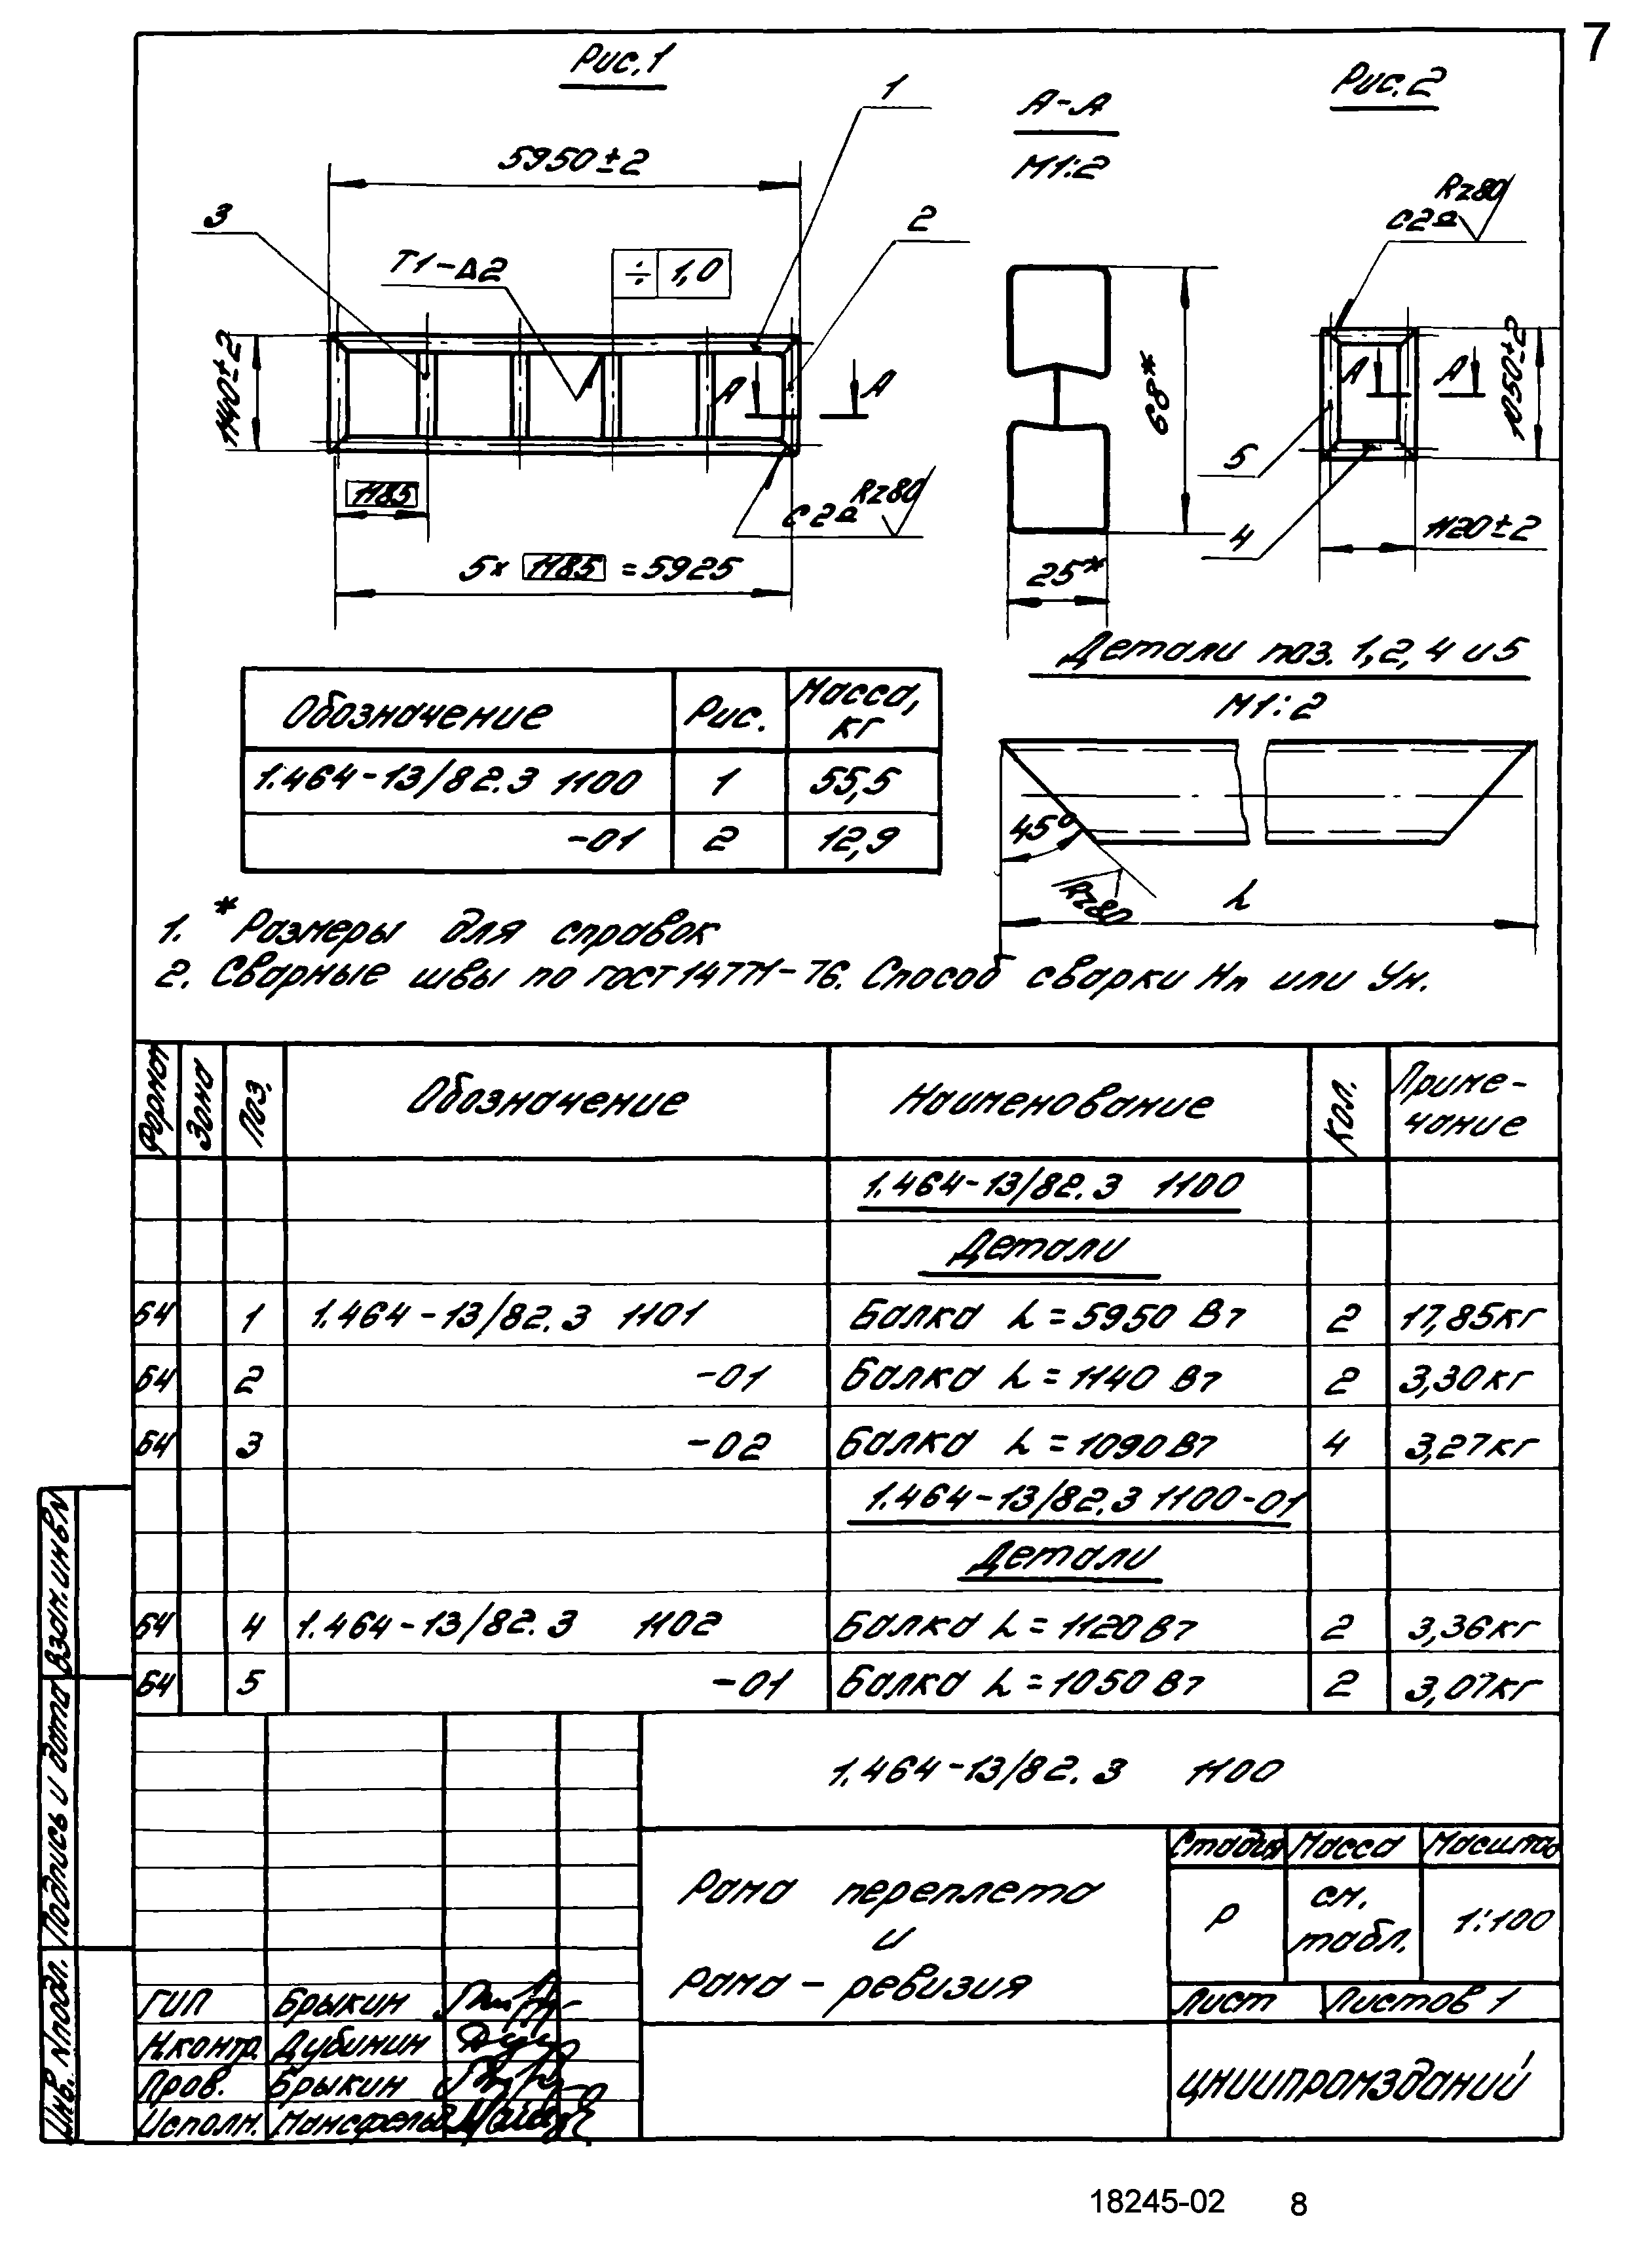 7
Рис.1
5950±2
1
3
2
Т1-Δ2
÷ 1,0
1140±2
А А
1185
С2 Rz80
5х 1185 =5925
А-А
М1:2
68*
25*
Рис.2
Rz80
С2
1050±2
А А
5
4
1120±2
Детали поз. 1,2,4 и 5
М1:2
45°
Rz80
L
Обозначение Рис. Масса, кг
1.464-13/82.3 1100 1 55,5
-01 2 12,9
1. * Размеры для справок
2. Сварные швы по гост 14771-76. Способ сварки Ип или Ун.
Формат Зона Поз. Обозначение Наименование Кол. Приме-чание
1.464-13/82.3 1100
Детали
БЧ 1 1.464-13/82.3 1101 Балка L=5950 Вт 2 17,85кг
БЧ 2 -01 Балка L=1140 Вт 2 3,30кг
БЧ 3 -02 Балка L=1090 Вт 4 3,27кг
1.464-13/82.3 1100-01
Детали
БЧ 4 1.464-13/82.3 1102 Балка L=1120 Вт 2 3,36кг
БЧ 5 -01 Балка L=1050 Вт 2 3,07кг
Взам.инв.N
Подпись и дата
Инв. Nподл.
1.464-13/82.3 1100
Рама переплета
и
рама-ревизия
Стадия Масса Масштаб
Р см. табл. 1:100
Лист Листов 1
ЦНИИПРОМЗДАНИЙ
ГИП Брыкин
Н.контр. Дубинин
Пров. Брыкин
Исполн.
18245-02 8